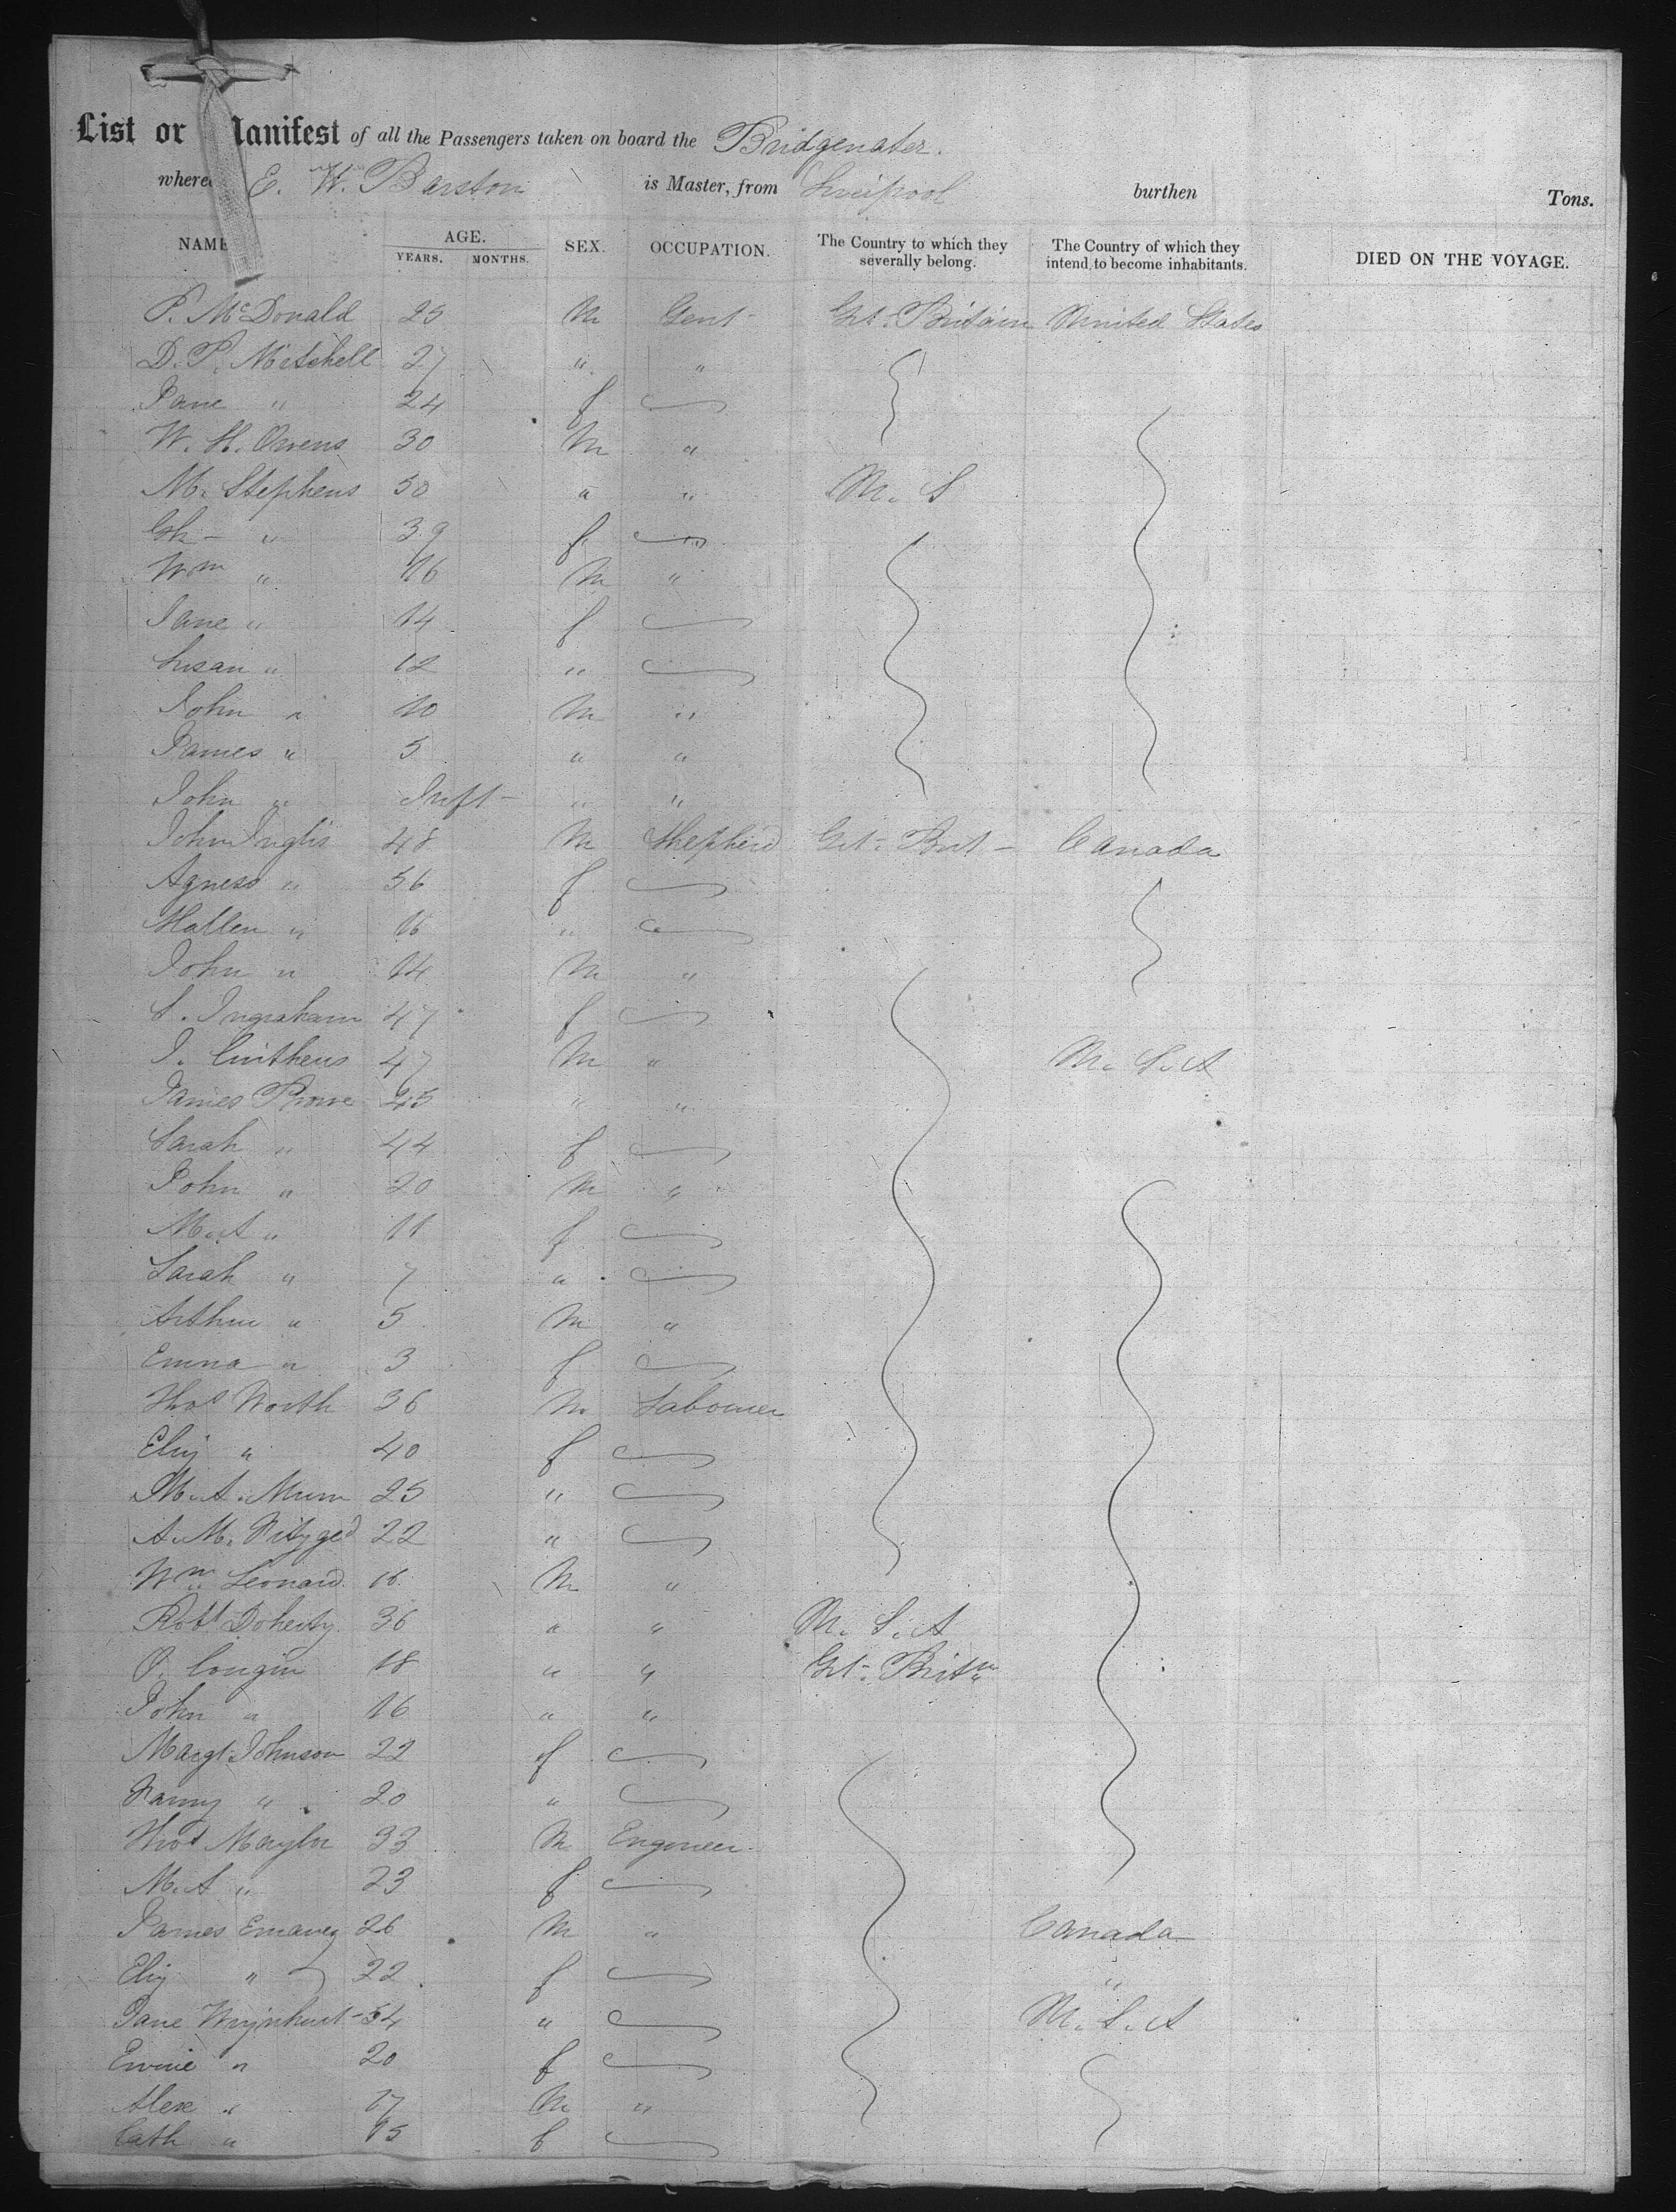 List or Manifest of all the Passengers taken on board the Bridgewater.
where E. W. Barstow is Master, from Liverpool burthen Tons.
NAME AGE. YEARS. MONTHS. SEX. OCCUPATION. The Country to which they severally belong. The Country of which they intend to become inhabitants. DIED ON THE VOYAGE.
P. McDonald 25 M Gent- Grt. Britain United States
D. P. Mitchell 27 " "
Jane " 24 f
W. H. Owens 30 M "
M. Stephens 50 " " U. S
" 39 f
Wm " 16 M "
Jane " 14 f
Susan " 12 "
John " 10 M "
James " 5 " "
John " Inft- " "
John Inglis 48 M Shepherd Grt. Brit- Canada
Agness " 56 f
Hallen " 16 "
John " 14 M "
S. Ingraham 47 f
J. 47 M " U. S. A
James Prowe 45 " "
Sarah " 44 f
John " 20 M "
M. A " 11 f
Sarah " 7 "
Arthur " 5 M "
Emma " 3 f
Thos Worth 36 M Labourer
Eliz " 40 f
M. A. Munn 25 "
A. M. Fitzged 22 "
Wm Leonard 16 M "
Robt Doherty 36 " " U. S. A
18 " " Grt. Britn
John " 16 " "
Margt Johnson 22 f
Fanny " 20 "
Thos Maylor 33 M Engineer
M. A " 23 f
James 26 M " Canada
Eliz " 22 f "
Jane 54 " U. S. A
" 20 f
Alex " 17 M "
Cath " 15 f